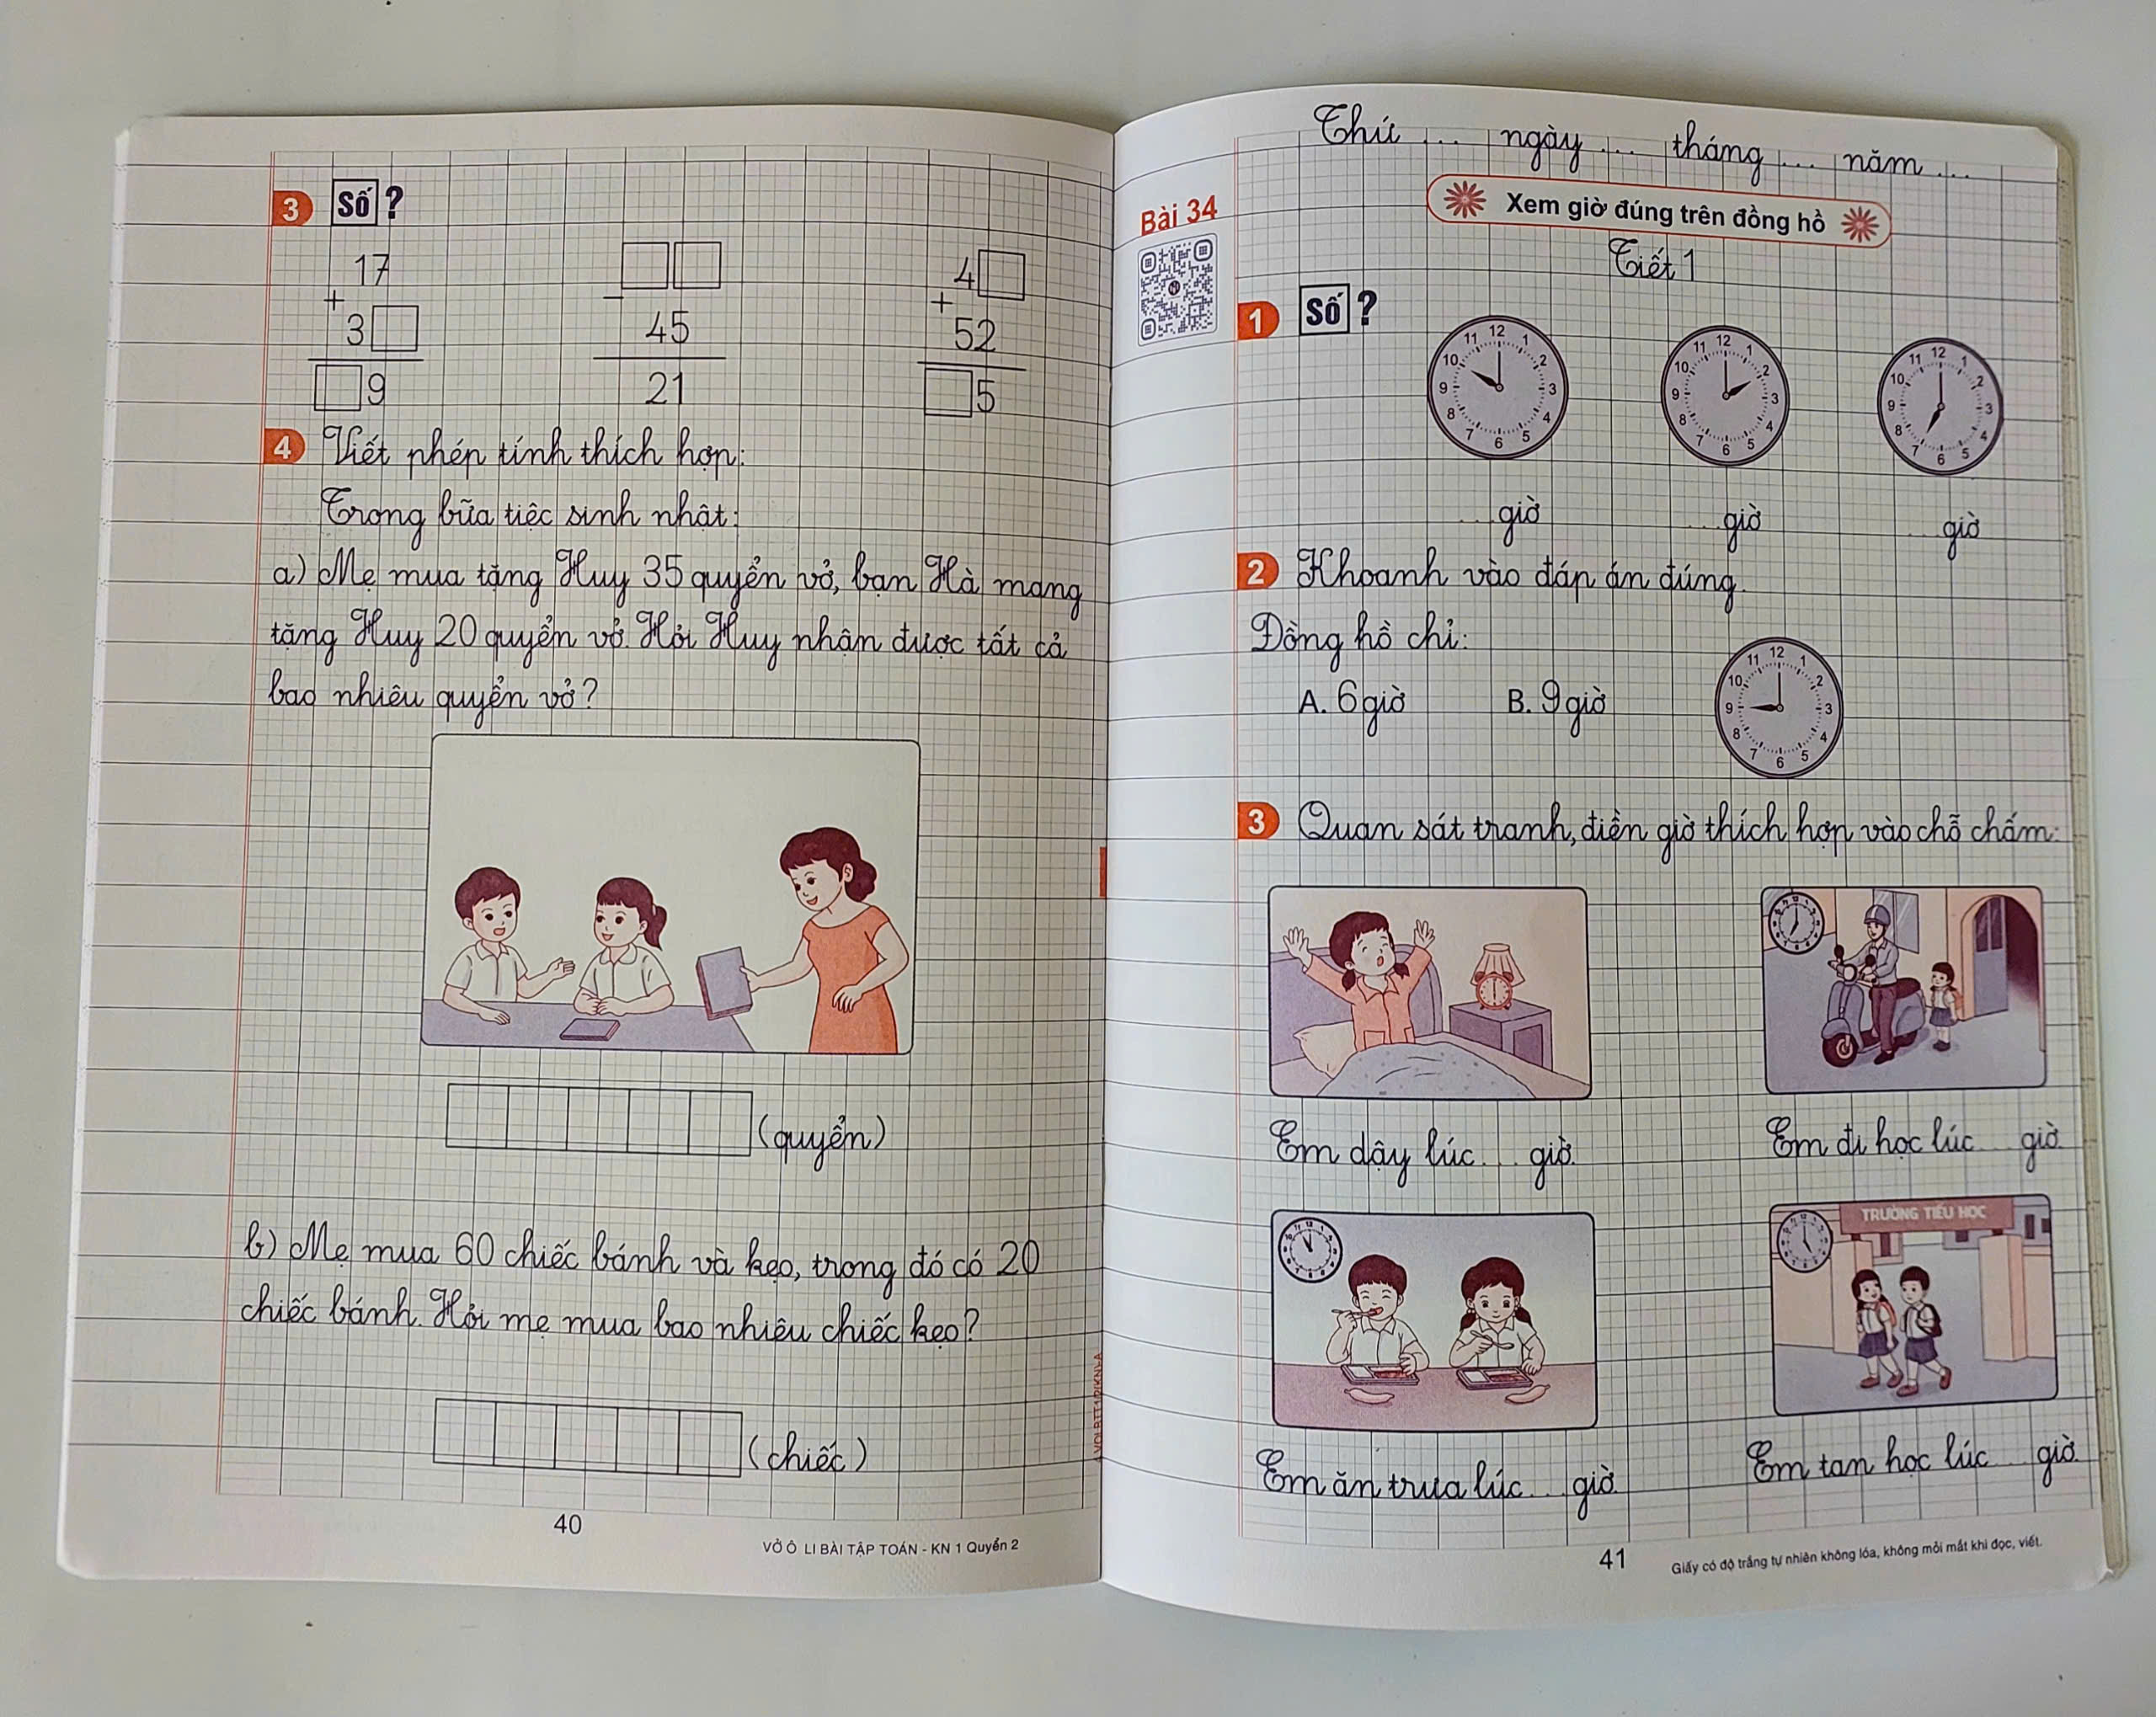 3 Số ?
17
+
3
9
−
45
21
4
+
52
5
4 Viết phép tính thích hợp:
Trong bữa tiệc sinh nhật:
a) Mẹ mua tặng Huy 35 quyển vở, bạn Hà mang
tặng Huy 20 quyển vở. Hỏi Huy nhận được tất cả
bao nhiêu quyển vở?
(quyển)
b) Mẹ mua 60 chiếc bánh và kẹo, trong đó có 20
chiếc bánh. Hỏi mẹ mua bao nhiêu chiếc kẹo?
(chiếc)
40
VỞ Ô LI BÀI TẬP TOÁN - KN 1 Quyển 2
Thứ ... ngày ... tháng ... năm ...
Bài 34
Xem giờ đúng trên đồng hồ
Tiết 1
1 Số ?
12 1 2 3 4 5 6 7 8 9 10 11
12 1 2 3 4 5 6 7 8 9 10 11
12 1 2 3 4 5 6 7 8 9 10 11
... giờ ... giờ ... giờ
2 Khoanh vào đáp án đúng.
Đồng hồ chỉ:
A. 6 giờ B. 9 giờ
12 1 2 3 4 5 6 7 8 9 10 11
3 Quan sát tranh, điền giờ thích hợp vào chỗ chấm:
Em dậy lúc ... giờ. Em đi học lúc ... giờ.
TRƯỜNG TIỂU HỌC
Em ăn trưa lúc ... giờ. Em tan học lúc ... giờ.
41
Giấy có độ trắng tự nhiên không lóa, không mỏi mắt khi đọc, viết.